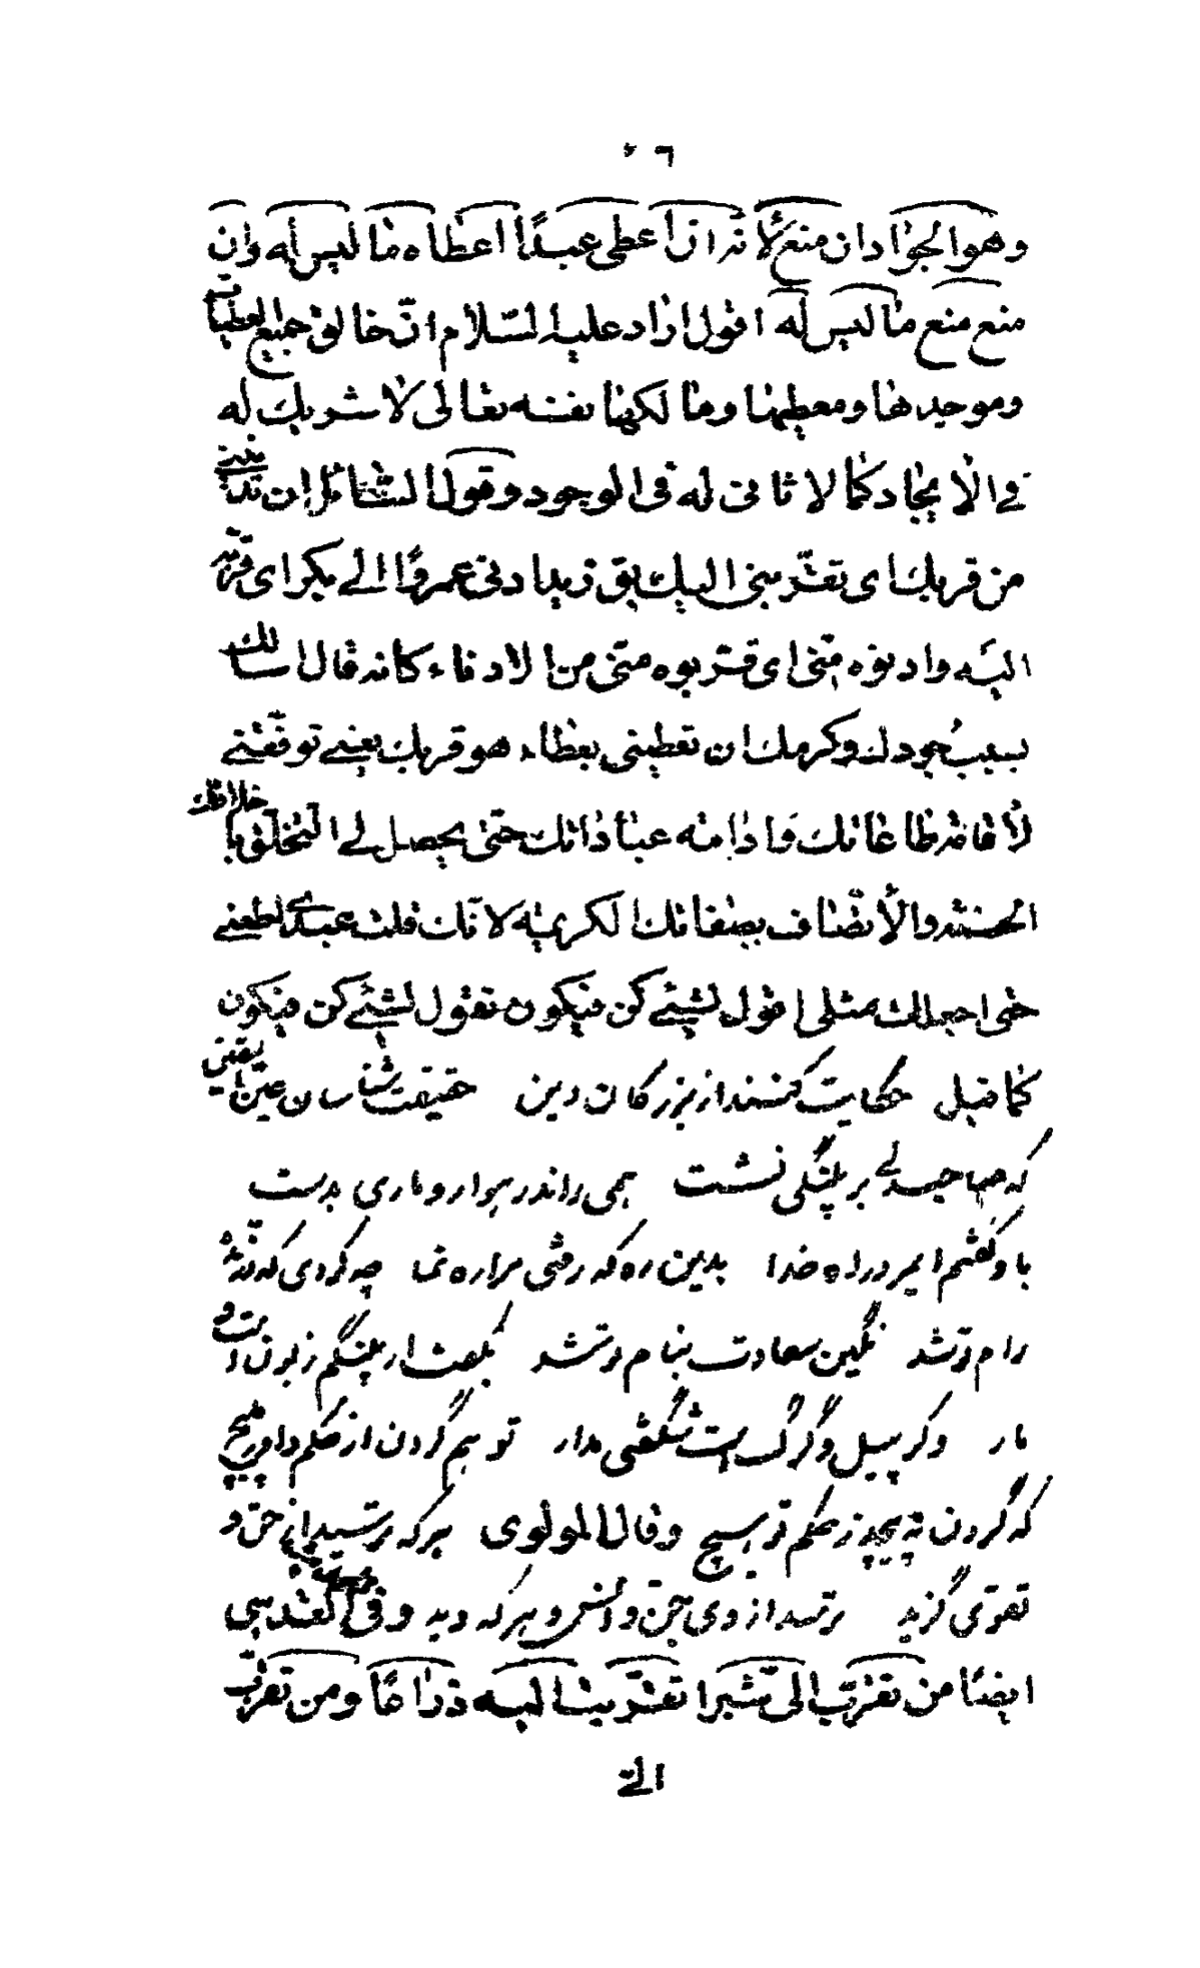 ٠٦
وهو الجواد ان منع لانه ان اعطى عبدا اعطاه ما ليس له وان
منع منع ما ليس له اقول اراد عليه السّلام انّ خالق جميع العطيات
وموجدها ومعطيها ومالكها نفسه تعالى لا شريك له
في الايجاد كما لا ثانى له فى الوجود وقول السّائل ان تدنينى
من قربك اى تقرّبنى اليك يق زيد ادنى عمروًا الى بكر اى قرّبه
اليه وادنوه منّى اى قربوه منّى من الادناء كانه قال اسالك
بسبب جودك وكرمك ان تعطينى بعطاء هو قربك يعنى توفّقنى
لاقامة طاعاتك وادامة عباداتك حتّى يحصل لى التخلّق باخلاقك
الحسنة والاتّصاف بصفاتك الكريمة لانّك قلت عبدى اطعنى
حتى اجعلك مثلى اقول لشيئ كن فيكون تقول لشيئ كن فيكون
كما قيل حكايت كنند از بزركان دين حقيقت شناسان عين اليقين
كه صاحبدلى بر پلنگى نشست همى راند رهوار و مارى بدست
باو گفتم ايمرد راه خدا بدين ره كه رفتى مرا ره نما چه كردى كه درّنده
رام تو شد نگين سعادت بنام تو شد بگفت ار پلنگم زبون است و
مار وگر پيل و گرگ است شگفتى مدار تو هم گردن از حكم داور مپيچ
كه گردن نه پيچد ز حكم تو هيچ وقال المولوى هر كه ترسيد از حق و
تقوى گزيد ترسد از وى جنّ و انس و هر كه ديد وفى الحديث القدسى
ايضًا من تقرّب الىّ شبرا تقرّبت اليه ذراعًا ومن تقرّب
الىّ